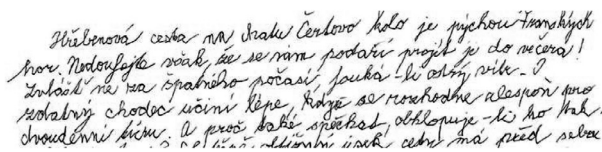 Hřebenová cesta na chatu Čertovo kolo je pýchou Franských
hor. Nedoufejte však, že se vám podaří projít je do večera!
Zvláště ne za špatného počasí, fouká-li ostrý vítr. I
zdatný chodec učiní lépe, když se rozhodne alespoň pro
dvoudenní túru. A proč také spěchat, obklopuje-li ho tak
úsek cesty má před sebou